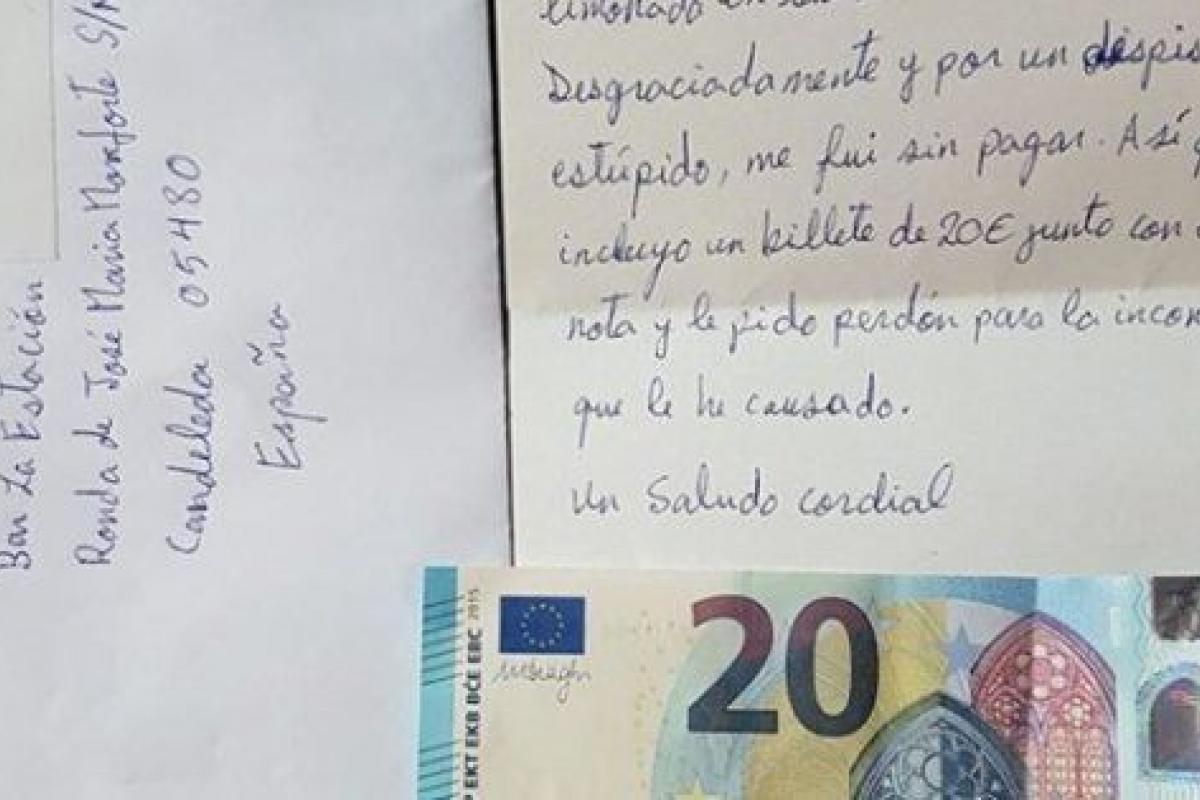 Bar La Estación
Ronda de José Maria Monforte S/N
Candeleda 05480
España
limonada en su
Desgraciadamente y por un despis
estúpido, me fui sin pagar. Así q
incluyo un billete de 20€ junto con
nota y le pido perdón para la incom
que le he causado.
Un Saludo cordial
EKT EKB BCE EBC 2015
20